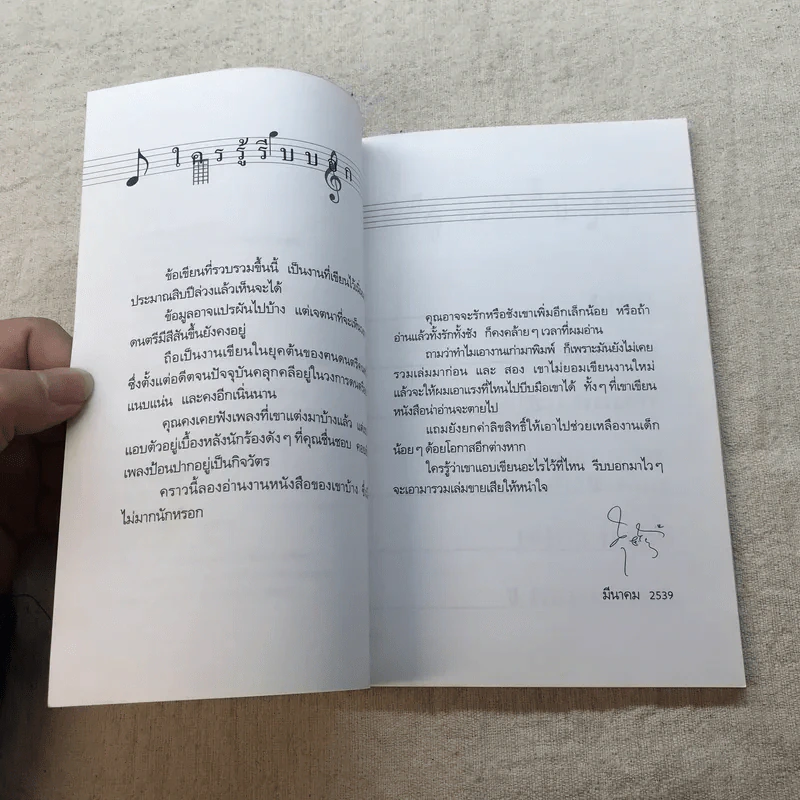 ใครรู้รีบบอก
ข้อเขียนที่รวบรวมขึ้นนี้ เป็นงานที่เขียนไว้
ประมาณสิบปีล่วงแล้วเห็นจะได้
ข้อมูลอาจแปรผันไปบ้าง แต่เจตนาที่จะ
ดนตรีมีสีสันขึ้นยังคงอยู่
ถือเป็นงานเขียนในยุคต้นของฅนดนตรี
ซึ่งตั้งแต่อดีตจนปัจจุบันคลุกคลีอยู่ในวงการดนตรี
แนบแน่น และคงอีกเนิ่นนาน
คุณคงเคยฟังเพลงที่เขาแต่งมาบ้างแล้ว
แอบตัวอยู่เบื้องหลังนักร้องดังๆ ที่คุณชื่นชอบ
เพลงป้อนปากอยู่เป็นกิจวัตร
คราวนี้ลองอ่านงานหนังสือของเขาบ้าง
ไม่มากนักหรอก
คุณอาจจะรักหรือชังเขาเพิ่มอีกเล็กน้อย หรือถ้า
อ่านแล้วทั้งรักทั้งชัง ก็คงคล้ายๆ เวลาที่ผมอ่าน
ถามว่าทำไมเอางานเก่ามาพิมพ์ ก็เพราะมันยังไม่เคย
รวมเล่มมาก่อน และ สอง เขาไม่ยอมเขียนงานใหม่
แล้วจะให้ผมเอาแรงที่ไหนไปบีบมือเขาได้ ทั้งๆ ที่เขาเขียน
หนังสือน่าอ่านจะตายไป
แถมยังยกค่าลิขสิทธิ์ให้เอาไปช่วยเหลืองานเด็ก
น้อยๆ ด้อยโอกาสอีกต่างหาก
ใครรู้ว่าเขาแอบเขียนอะไรไว้ที่ไหน รีบบอกมาไวๆ
จะเอามารวมเล่มขายเสียให้หนำใจ
มีนาคม 2539